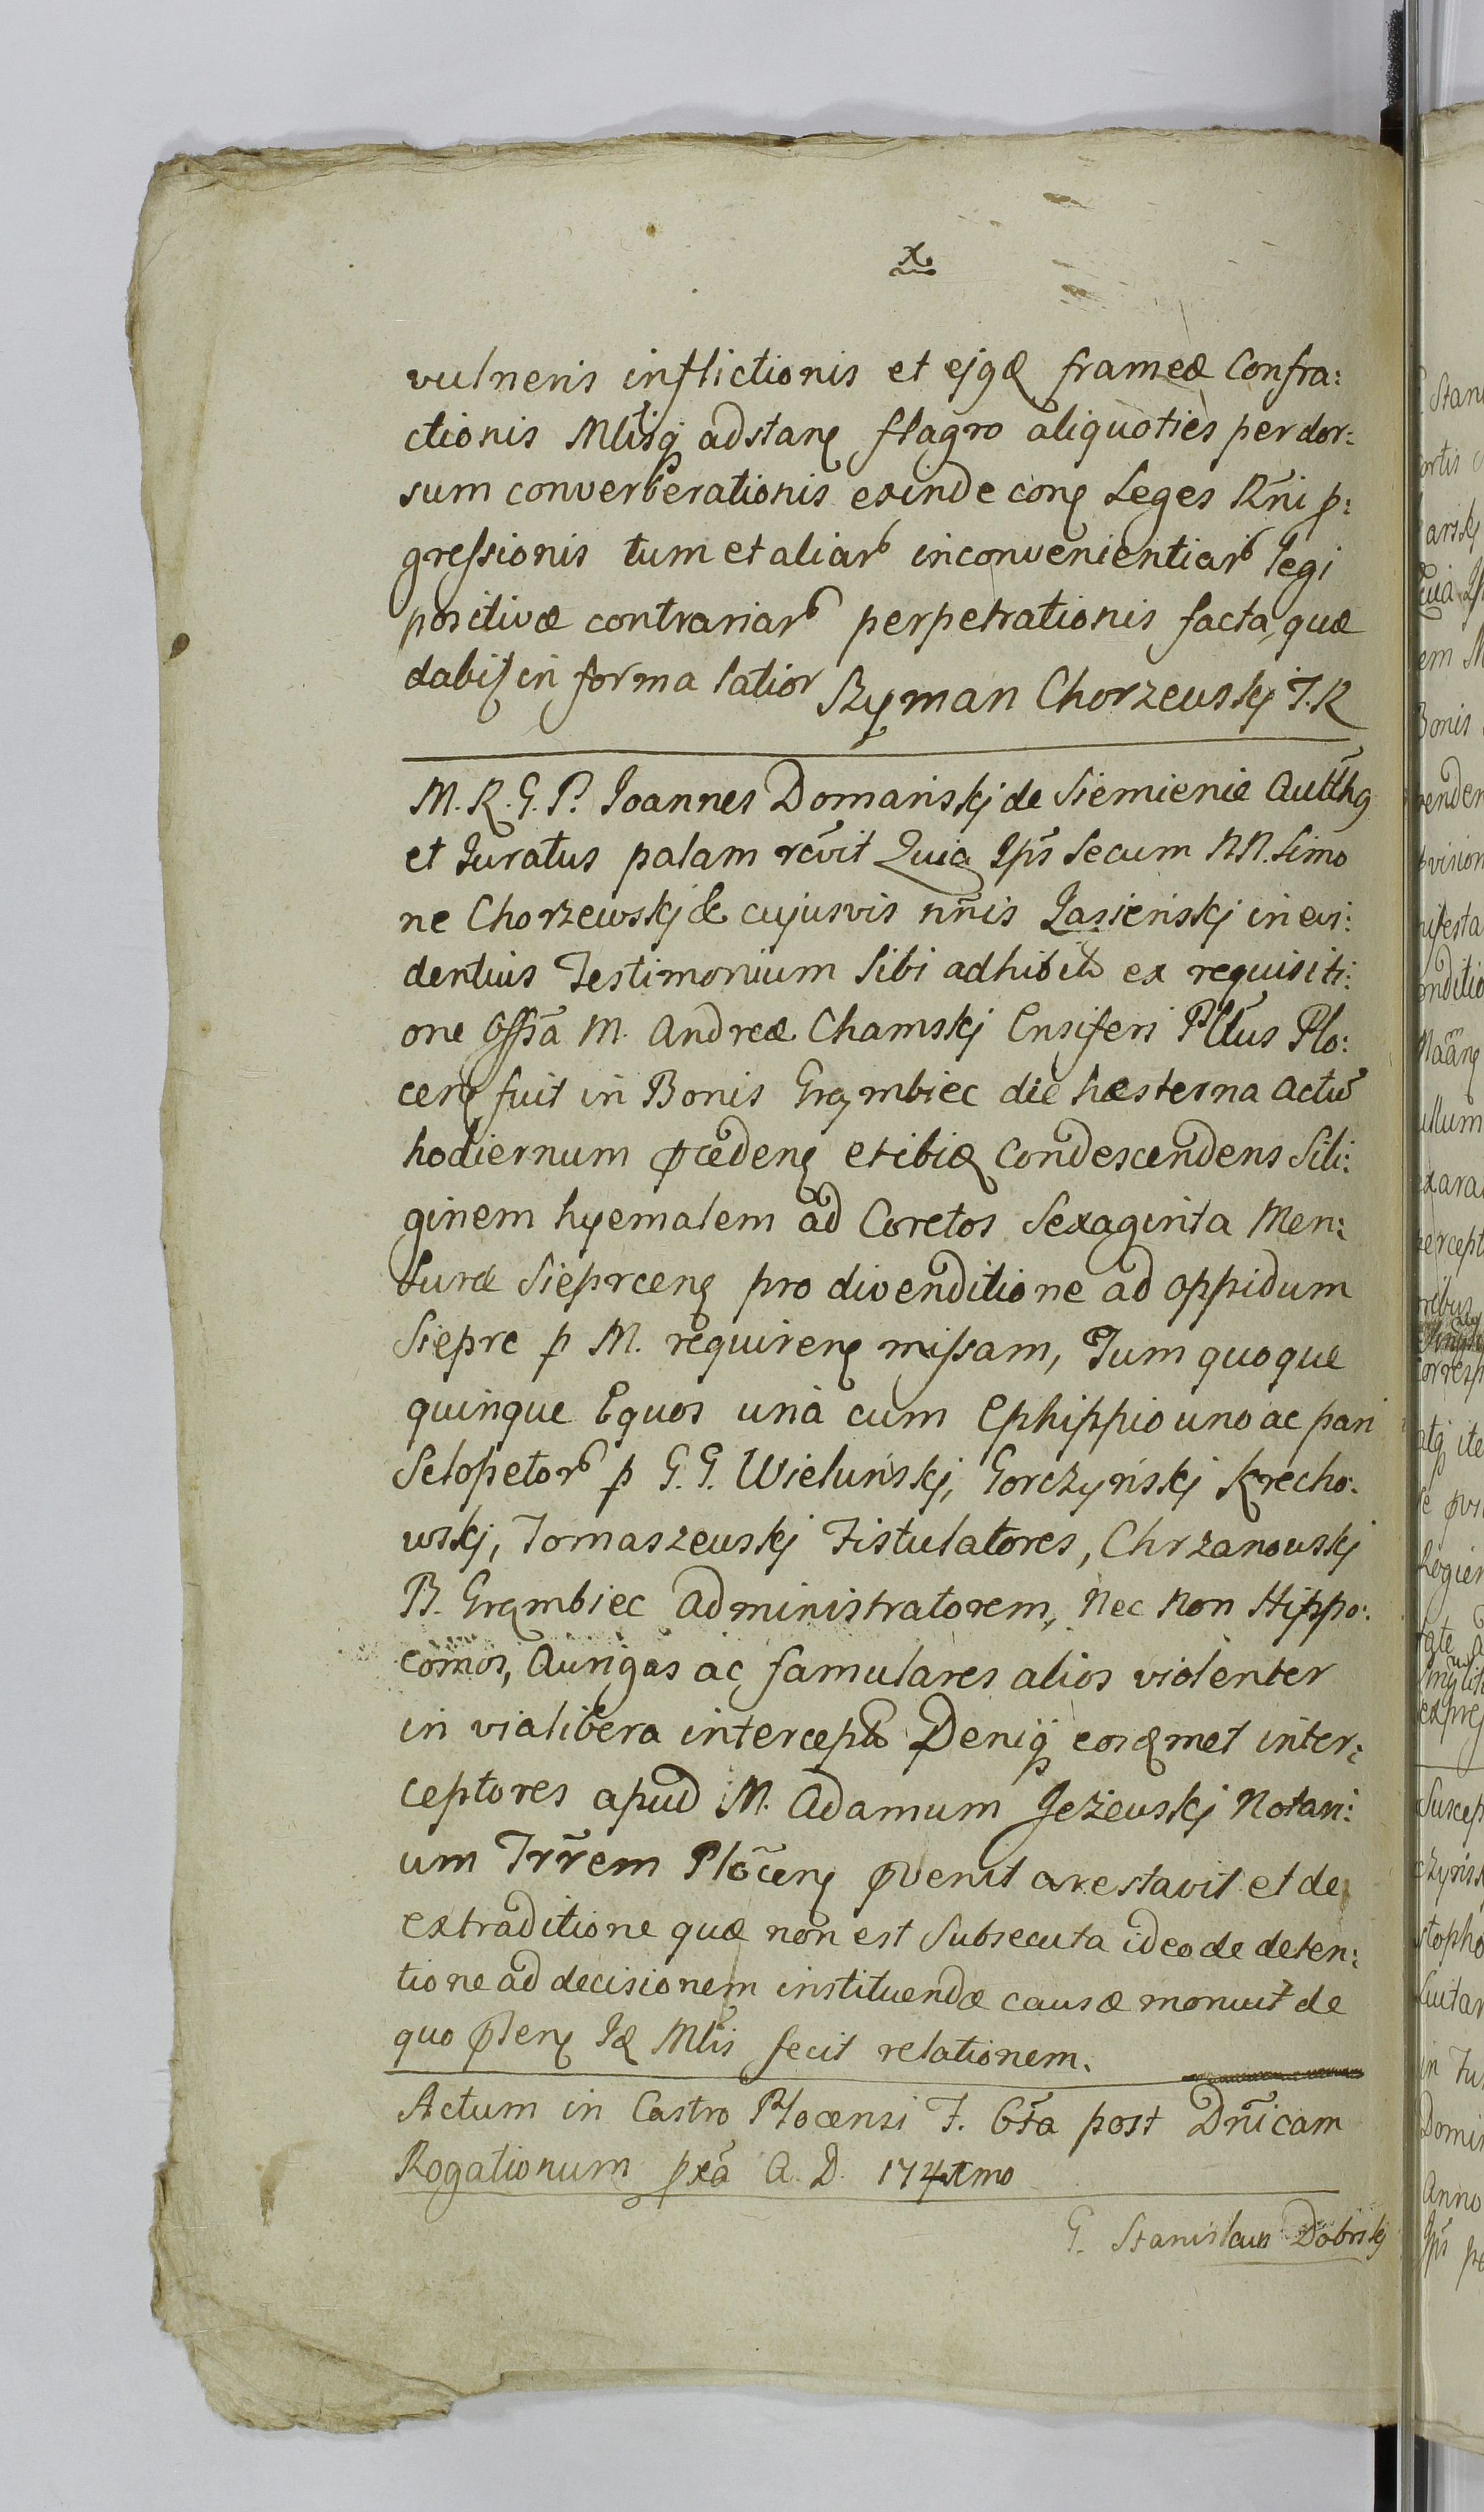 x
vulneris inflictionis et ejqӕ frameæ Confra:
ctionis Mltisq adstanę flagro aliquoties per dor:
sum converberationis exinde conę Leges Rñi p:
gressionis tum et aliarꝝ inconvenientiarꝝ legi
positivæ contrariarꝝ perpetrationis facta, quæ
in forma latior Szyman Chorzewskj J.R
M. R. G. P. Ioannes Domańskj de Siemienie Autthg
et Iuratus palam rcvit Quia Ips Secum NN. Simo
ne Chorzewskj & cujusvis nñis Jasieńskj in evi:
dentius Testimonium Sibi adhibit ex requisiti:
one M. Andreæ Chamskj Ensiferi Pltus Plo:
cenę fuit in Bonis Grąmbiec die hæsterna actũ
hodiernum pcædenę et ibiꝗ Condescendens Sili:
ginem hyemalem ad Coretos Sexaginta Men:
suræ Sieprcenę pro divenditione ad oppidum
Sieprc p M. requirenę missam, Tum quoque
quinque Equos unà cum Ephippio uno ac pari
Sclopetorꝝ p G. G. Wieluńskj, Gorczyńskj Krecho:
wskj, Tomaszewskj Fistulatores, Chrzanowskj
B. Grąmbiec Administratorem, Nec Non Hippo:
comos, Aurigas ac famulares alios violenter
in via libera intercept Deniq eosꝗmet inter:
ceptores apud M. Adamum Jeżewskj Notari:
um Trr̃em Plõcenę pvenit arestavit et de
extraditione quæ non est Subsecuta ideo de deten:
tione ad decisionem instituendæ causæ monuit de
quo pstenę Iꝗ Mltis fecit relationem.
Actum in Castro Plocensi F. 6ta post Dñicam
Rogationum pxã A. D. 174 mo
G. Stanislaus Dobrskj